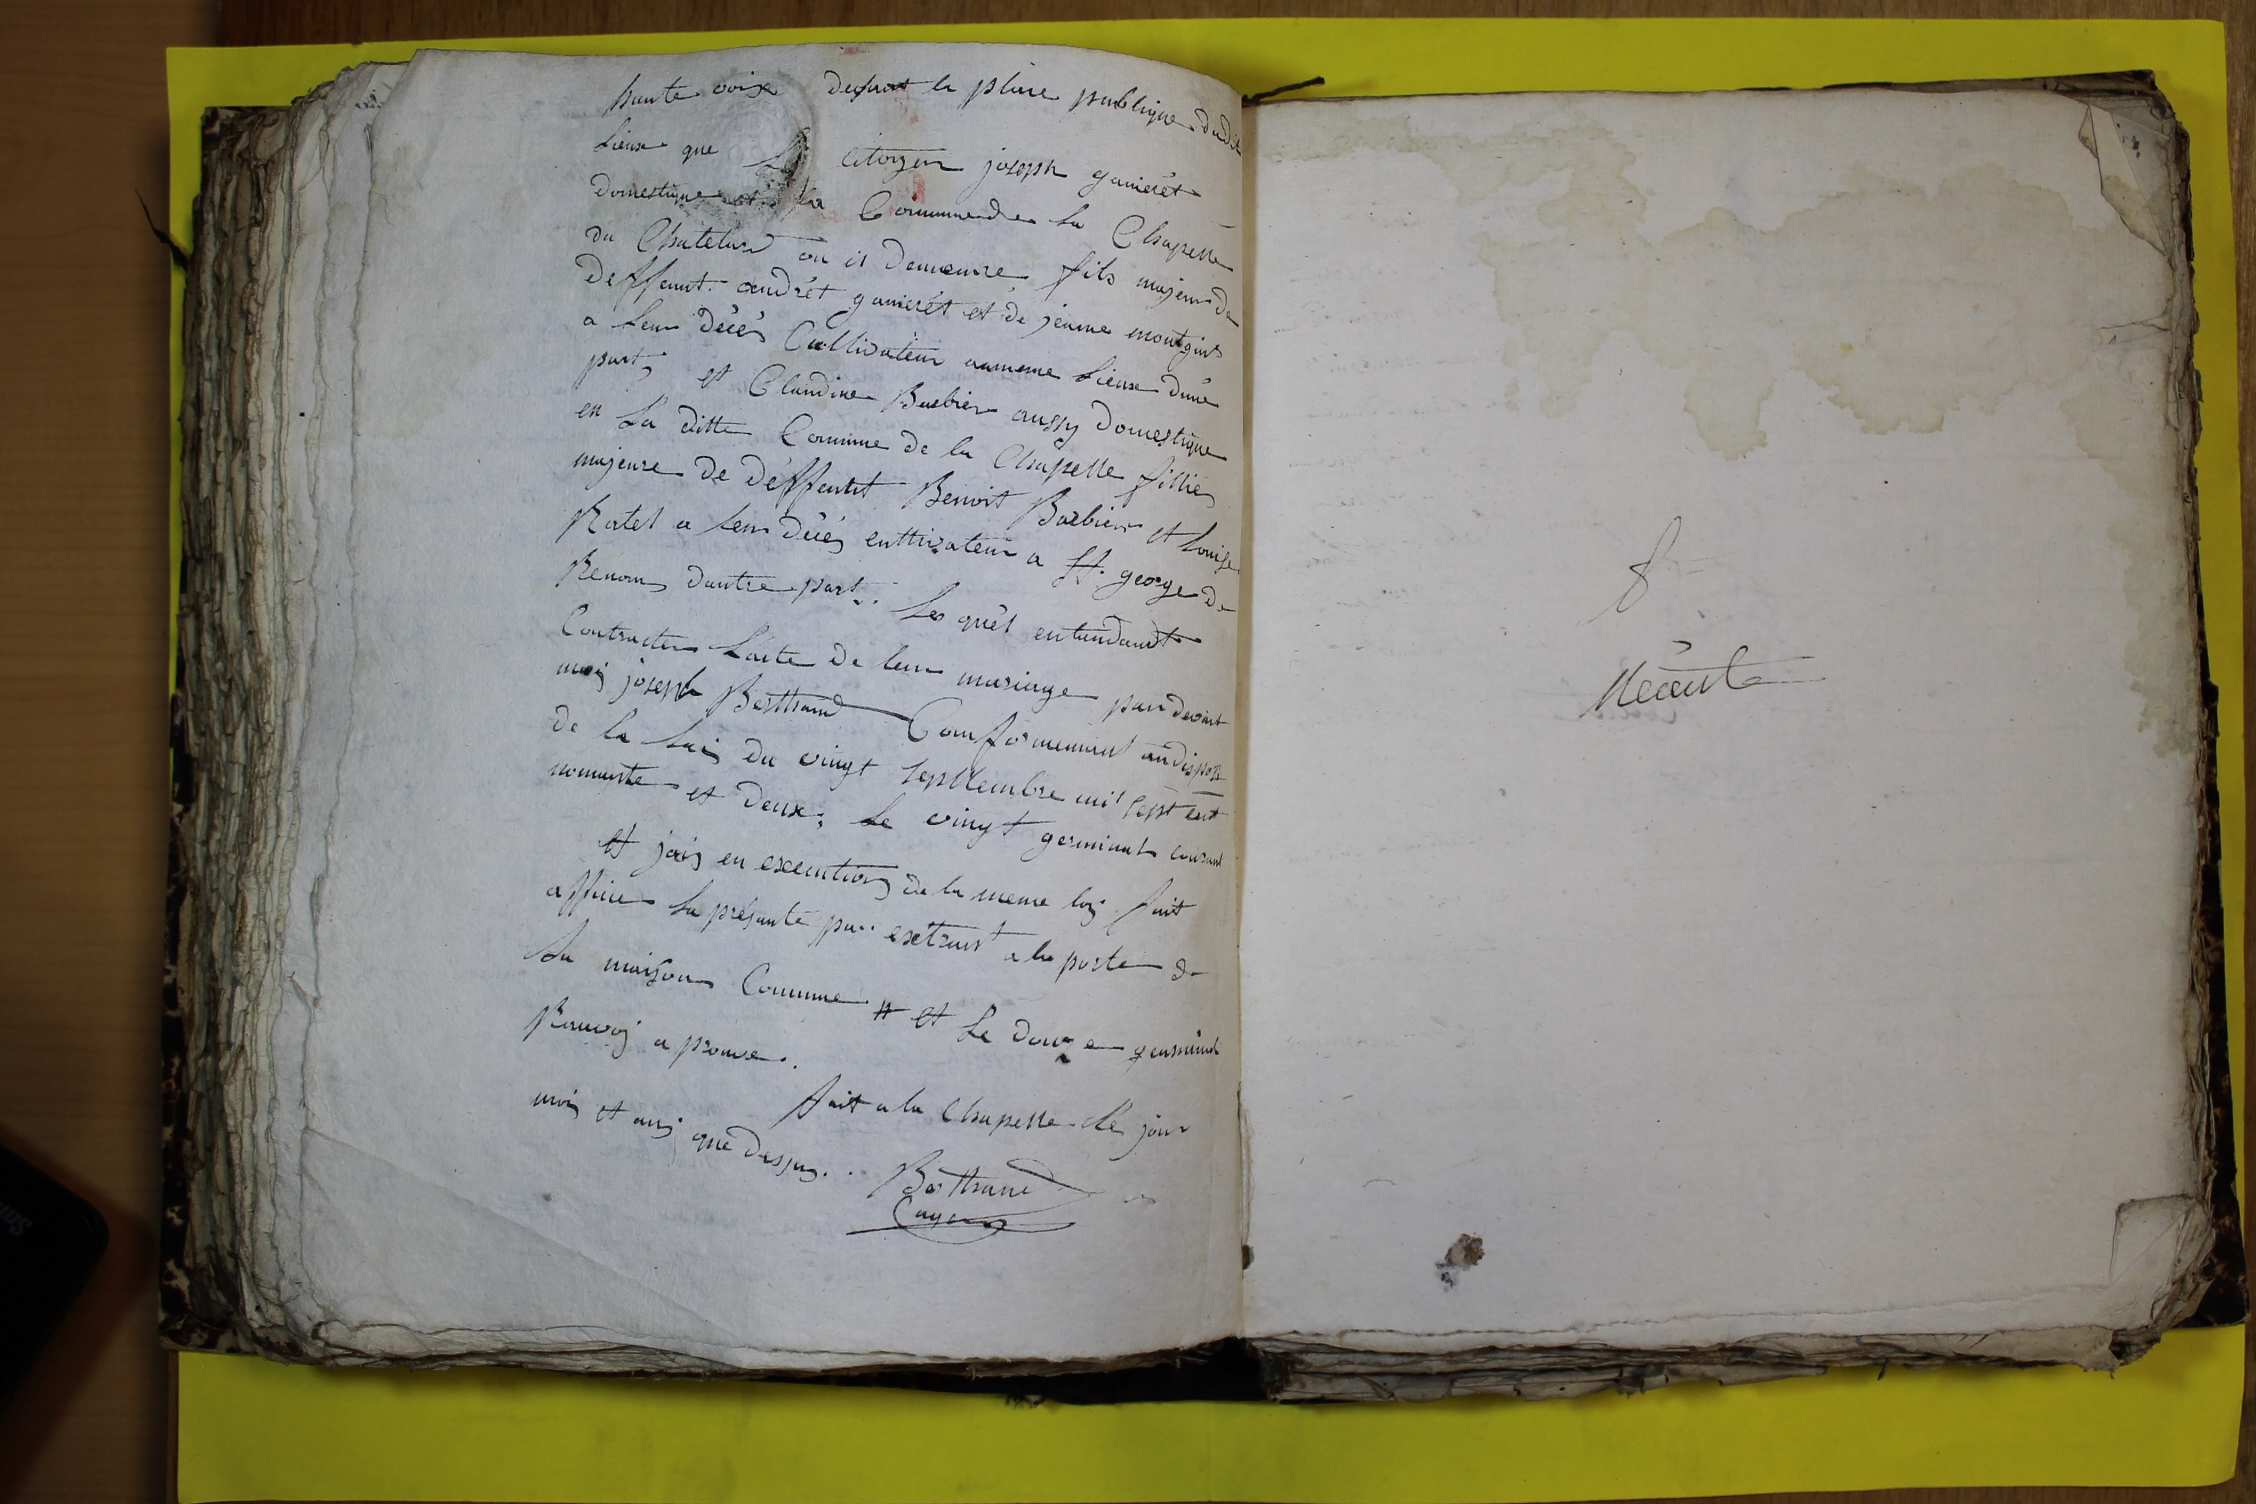 haute voix devant la place publique dudit
Lieux que Le citoyen joseph ganierét
Domestique et La Commune de La Chapelle
du Chatelard ou il demeure fils majeur de
deffunt andrét ganierét et de jeanne montgins
a Leur décés Cultivateur aumeme Lieux dune
part, et Claudine Barbier aussy domestique
en La ditte Commune de la Chapelle fillie
majeure de déffentst Benoit Barbier et Louise
Ratel a leur décés cultivateur a St. george de
Renom dautre part. Les quél entandandt
Contracter Lacte de leur mariage pardevant
moÿ joseph Berttrand Conformement audispos
de la Loÿ du vingt septtembre mil sept cent
nonante et deux; Le vingt germinal courant
et jaiÿ en execution de la meme loÿ fait
afficer La présante par extrait a la porte de
La maison Commune # et Le douze germinal
Ranvoÿ a prouve.
fait a la Chapelle Le jour
mois et anÿ que dessus. Berttrand
Néant